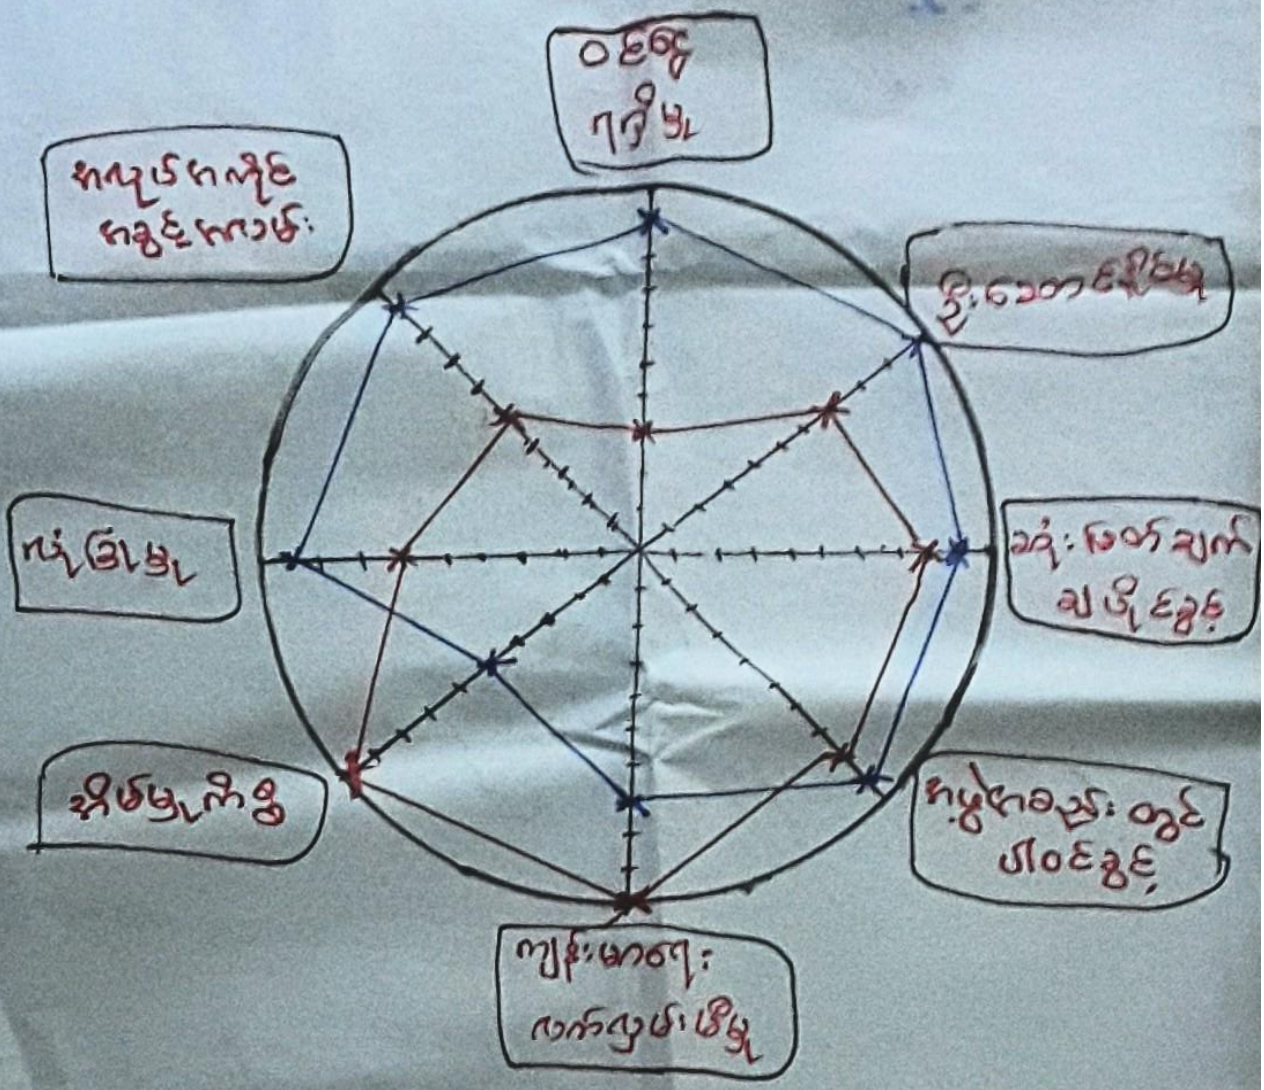 ဝင်ငွေ
ရရှိမှု
ဦးဆောင်နိုင်မှု
ဆုံးဖြတ်ချက်
ချပိုင်ခွင့်
အဖွဲ့အစည်းတွင်
ပါဝင်ခွင့်
ကျန်းမာရေး
လက်လှမ်းမီမှု
အိမ်မှုကိစ္စ
လုံခြုံမှု
အလုပ်အကိုင်
အခွင့်အလမ်း